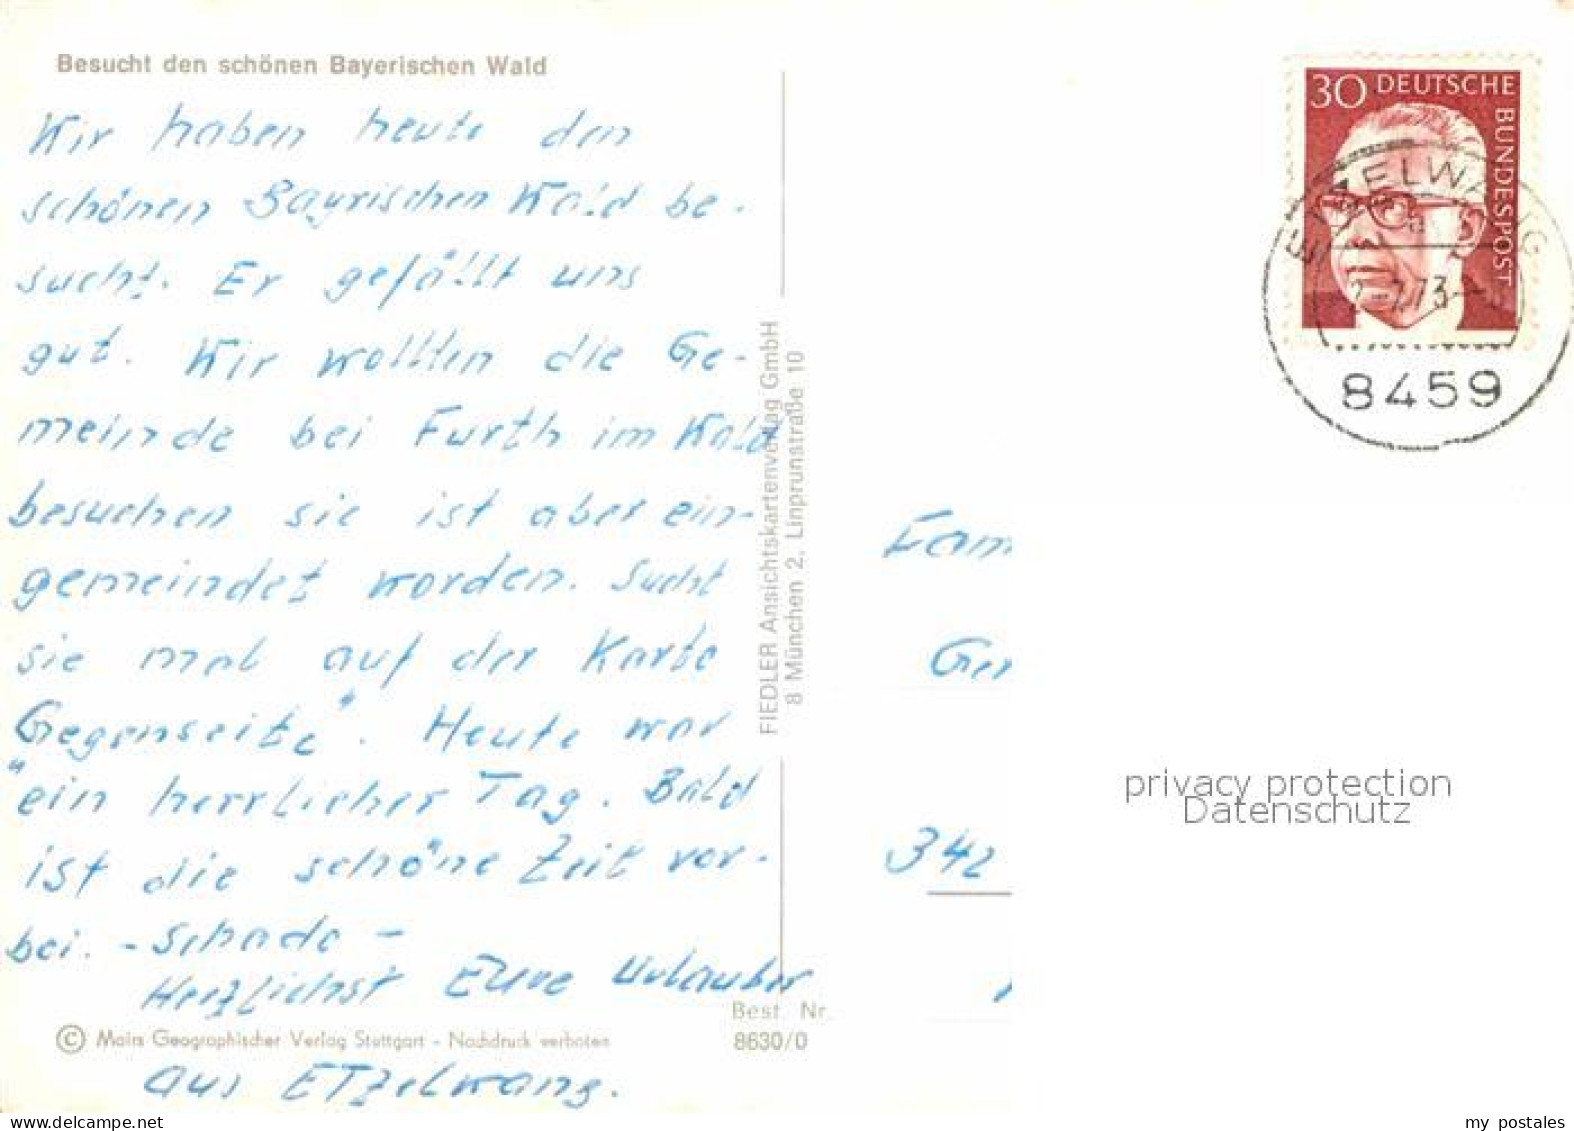 Besucht den schönen Bayerischen Wald
Wir haben heute den
schönen Bayrischen Wald be-
sucht. Er gefällt uns
gut. Wir wollten die Ge-
meinde bei Furth im Wald
besuchen sie ist aber ein-
gemeindet worden. Sucht
sie mal auf der Karte
"Gegenseite". Heute war
ein herrlicher Tag. Bald
ist die schöne Zeit vor-
bei. - Schade -
Herzlichst Eure Urlauber
aus ETzelwang.
© Mairs Geographischer Verlag Stuttgart - Nachdruck verboten
Best. Nr.
8630/0
FIEDLER Ansichtskartenverlag GmbH
8 München 2, Linprunstraße 10
30 DEUTSCHE BUNDESPOST
ETZELWANG
2.-7.73
8459
Fam
Ger
342
privacy protection
Datenschutz
www.delcampe.net
my postales